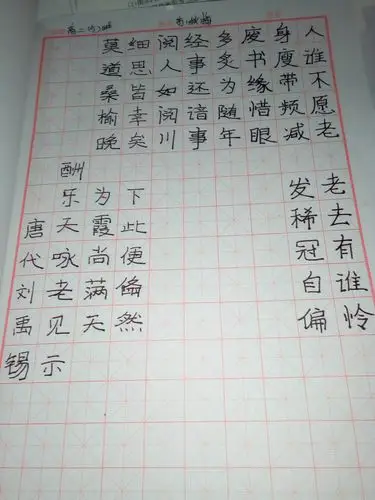 人谁不愿老老去有谁怜
身瘦带频减发稀冠自偏
废书缘惜眼
多炙为随年
经事还谙事
阅人如阅川
细思皆幸矣下此便翛然
莫道桑榆晚为霞尚满天
酬乐天咏老见示
唐代刘禹锡